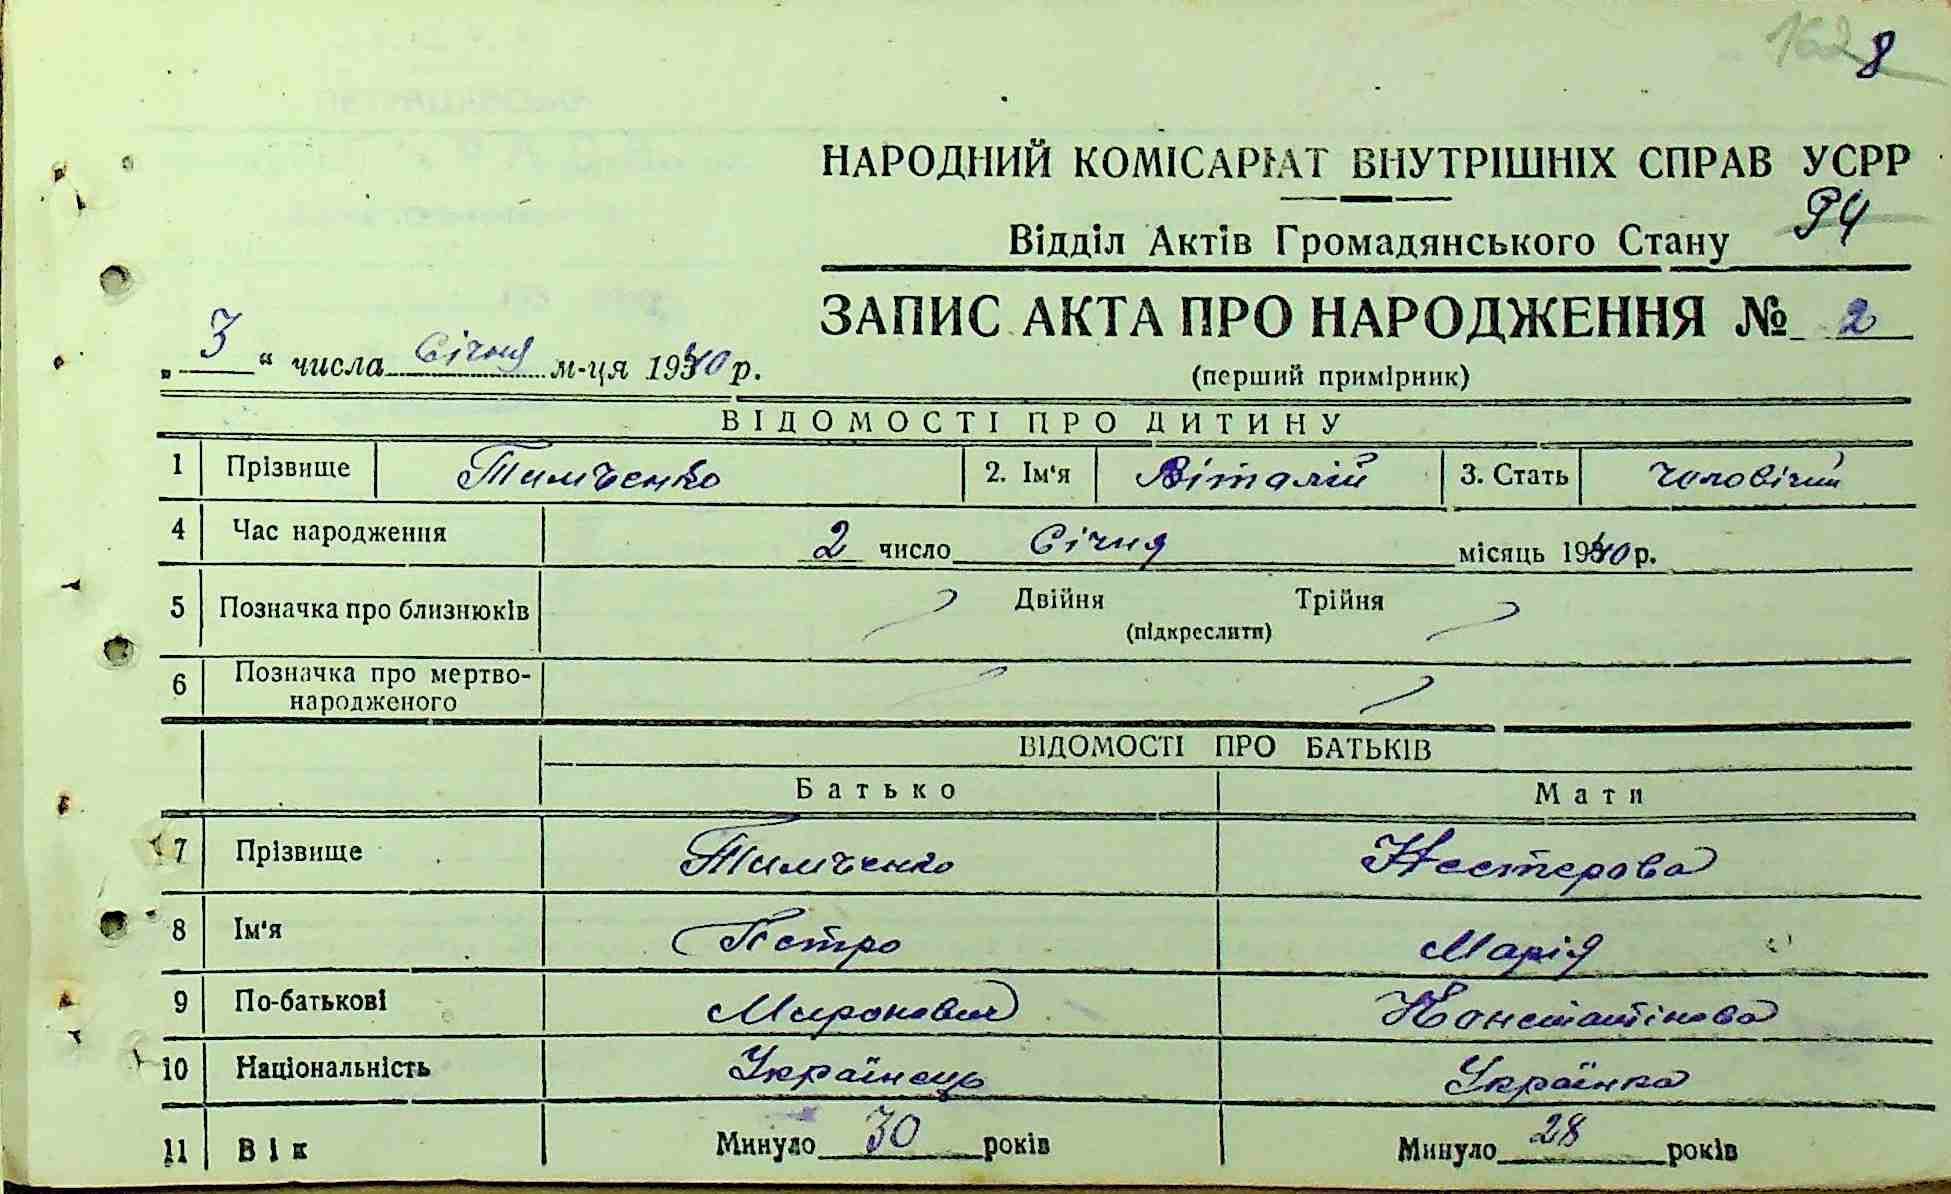 8
НАРОДНИЙ КОМІСАРІАТ ВНУТРІШНІХ СПРАВ УСРР
Відділ Актів Громадянського Стану 94
ЗАПИС АКТА ПРО НАРОДЖЕННЯ № 2
(перший примірник)
„ 3 “ числа Січня м-ця 1940 р.
ВІДОМОСТІ ПРО ДИТИНУ
1 Прізвище Тимченко 2. Ім'я Віталій 3. Стать чоловічий
4 Час народження 2 число Січня місяць 1940 р.
5 Позначка про близнюків Двійня Трійня
(підкреслити)
6 Позначка про мертво-
народженого
ВІДОМОСТІ ПРО БАТЬКІВ
Батько Мати
7 Прізвище Тимченко Нестерова
8 Ім'я Петро Марія
9 По-батькові Миронович Константінова
10 Національність Українець Українка
11 Вік Минуло 30 років Минуло 28 років